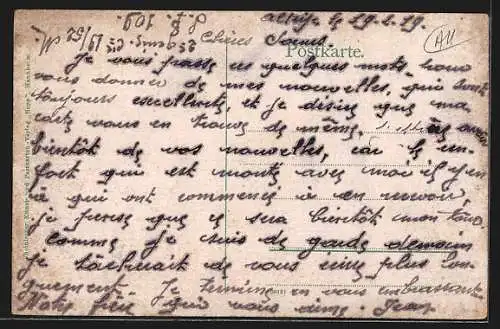 le 19.2.19.
Chères Sœurs.
Postkarte.
Je vous passe ces quelques mots pour
vous donner de mes nouvelles, qui sont
toujours excellentes, et je désire que ma
carte vous en trouve de même.
bientôt de vos nouvelles, car le ren-
fort qui est monté avec moi il y en
à qui ont commencés à en recevoir,
je pense que ce sera bientôt mon tour.
comme je suis de garde demain
je tâcherait de vous écrire plus lon-
guement. Je termine en vous embrassant
Votre frère qui vous aime. Jean